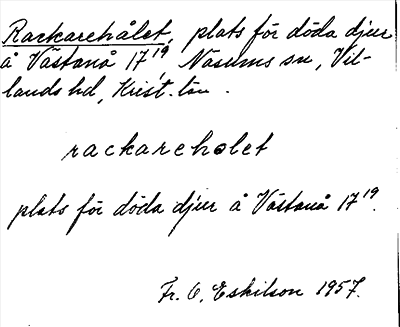 Rackarehålet, plats för döda djur
å Västanå 17¹⁹, Näsums sn, Vil-
lands hd, Krist. län.
rackareholet
plats för döda djur å Västanå 17¹⁹.
Fr. O. Eskilson 1957.